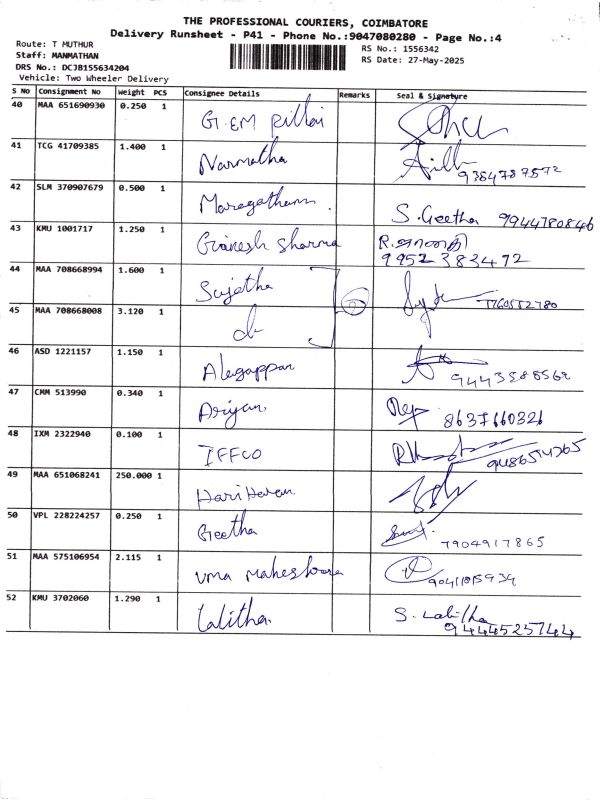 THE PROFESSIONAL COURIERS, COIMBATORE
Delivery Runsheet - P41 - Phone No.:9047080280 - Page No.:4
Route: T MUTHUR
RS No.: 1556342
Staff: MANMATHAN
RS Date: 27-May-2025
DRS No.: DCJB155634204
Vehicle: Two Wheeler Delivery
S No Consignment No Weight PCS Consignee Details Remarks Seal & Signature
40 MAA 651690930 0.250 1 G.EM Pillai
41 TCG 41709385 1.400 1 Narmatha
9384787572
42 SLM 370907679 0.500 1 Maragatham . S. Geetha 9944780846
43 KMU 1001717 1.250 1 Ganesh Sharma
9952383472
44 MAA 708668994 1.600 1 Sujatha
45 MAA 708668008 3.120 1
46 ASD 1221157 1.150 1 Alagappan
47 CMM 513990 0.340 1 Ariyan
8637660326
48 IXM 2322940 0.100 1 IFFCO
49 MAA 651068241 250.000 1 Hari Haran
50 VPL 228224257 0.250 1 Geetha
7904917865
51 MAA 575106954 2.115 1 Uma Maheshwara
52 KMU 3702060 1.290 1 Lalitha S. Lalitha
9444525744